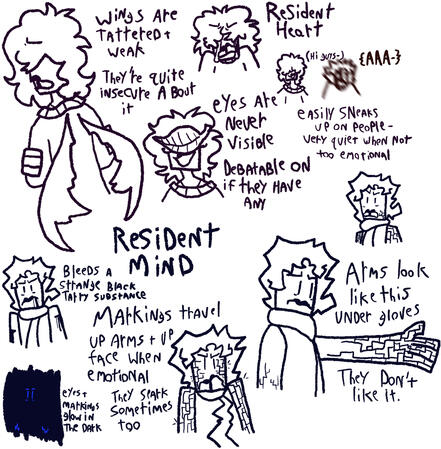 Wings are
tattered +
weak
They're quite
insecure about
it
Resident
Heart
(Hi guys-)
{AAA-}
easily sneaks
up on people-
very quiet when not
too emotional
eyes are
never
visible
Debatable on
if they have
any
Resident
Mind
Bleeds a
strange black
tarry substance
Markings travel
up arms + up
face when
emotional
They spark
sometimes
too
eyes +
markings
glow in
the dark
Arms look
like this
under gloves
They don't
like it.